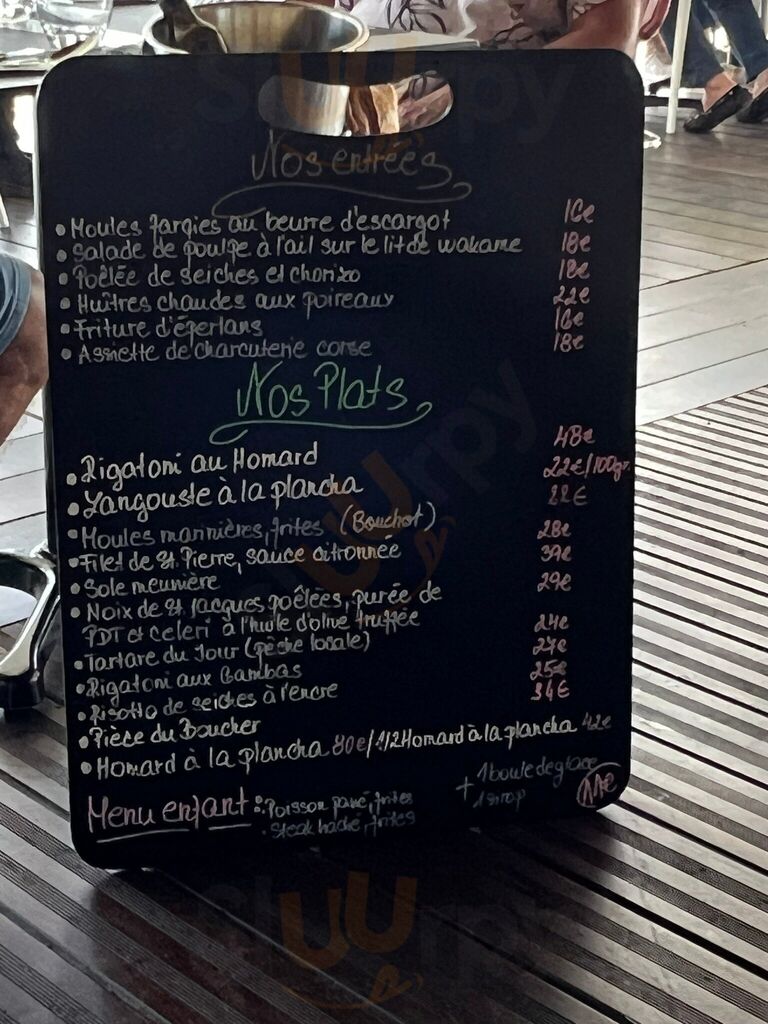 Nos entrées
• Moules farcies au beurre d'escargot 16€
• Salade de poulpe à l'ail sur le lit de wakame 18€
• Poêlée de seiches et chorizo 18€
• Huîtres chaudes aux poireaux 22€
• Friture d'éperlans 16€
• Assiette de charcuterie corse 18€
Nos Plats
• Rigatoni au Homard 48€
• Langouste à la plancha 22€/100gr
• Moules marinières, frites (Bouchot) 22€
• Filet de St Pierre, sauce citronnée 28€
• Sole meunière 39€
• Noix de St Jacques poêlées, purée de 29€
PDT et Celeri à l'huile d'olive truffée
• Tartare du Jour (pêche locale) 24€
• Rigatoni aux Gambas 27€
• Risotto de seiches à l'encre 25€
• Pièce du Boucher 34€
• Homard à la plancha 80€/1/2 Homard à la plancha 42€
Menu enfant : • Poisson pané, frites + 1 boule de glace
• Steak haché, frites 1 sirop 11€
Sluurpy
Sluurpy
Sluurpy